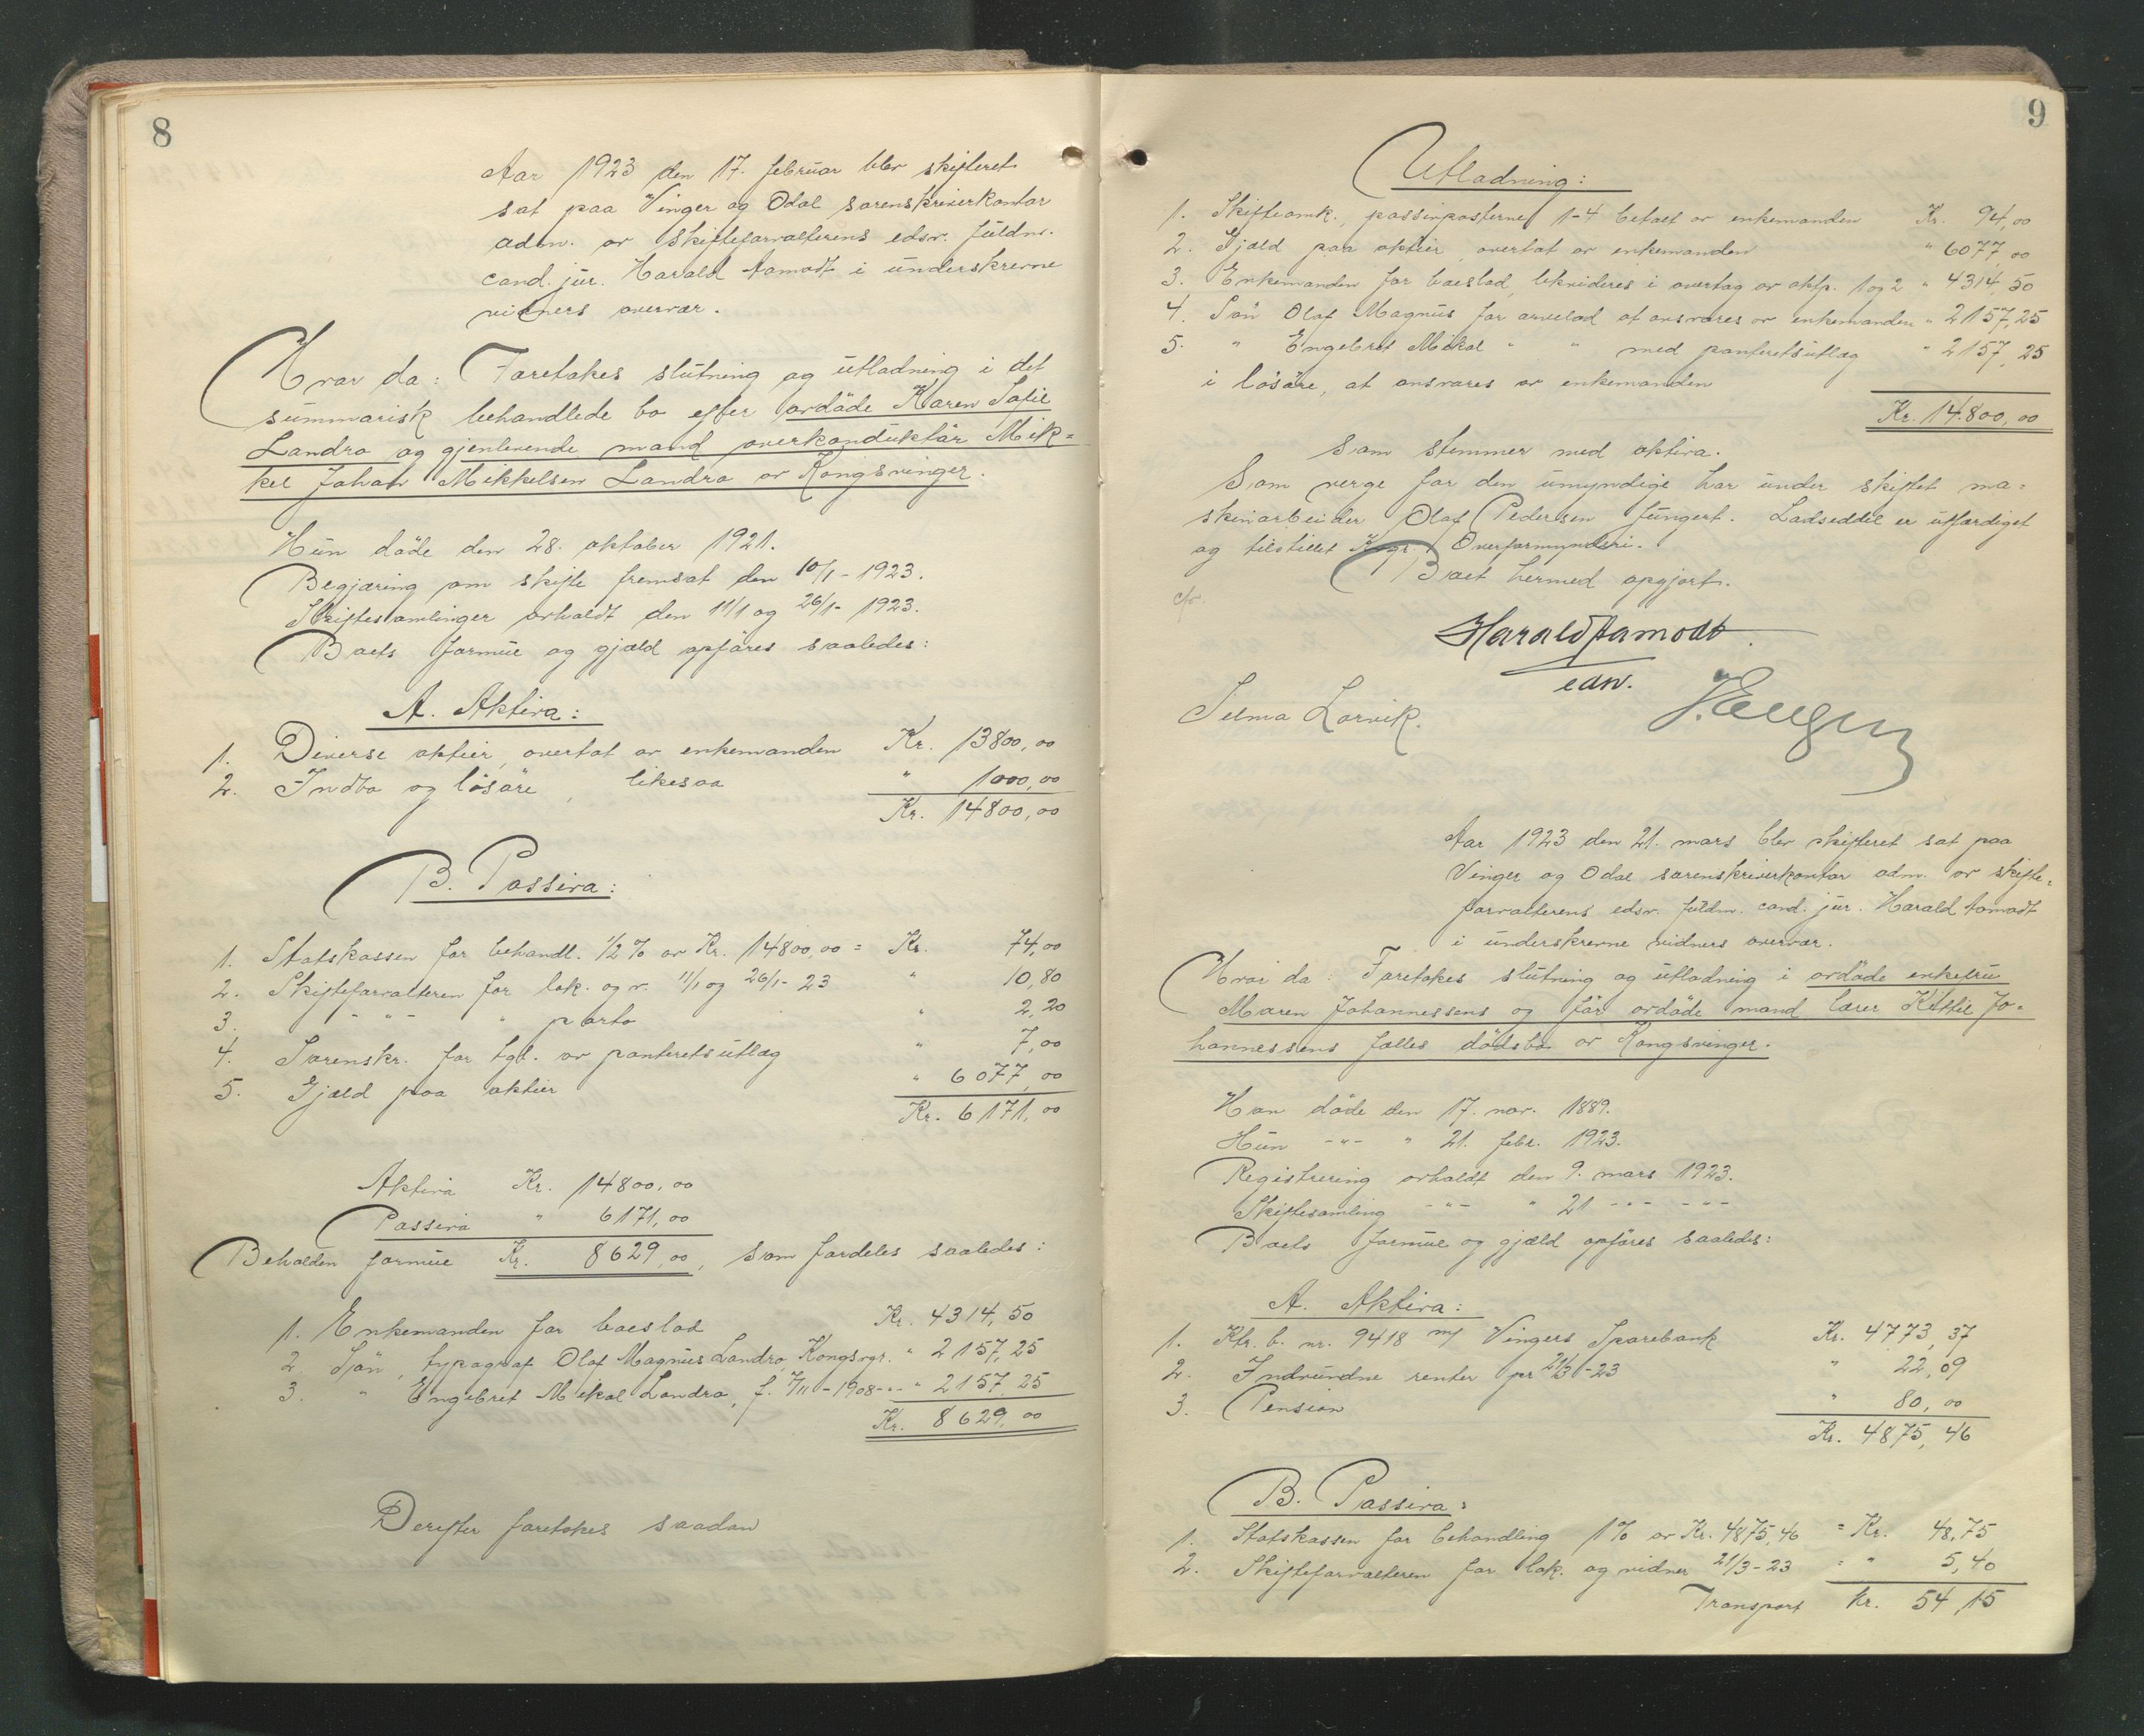 8
Aar 1923 den 17. februar blev skifteret
sat paa Vinger og Odal sorenskriverkontor
adm. av skifteforvalterens edsv. fuldm.
cand. jur. Harald Aamodt i underskrevne
vidners overvær.
Hvor da: Foretokes slutning og utlodning i det
summarisk behandlede bo efter avdöde Karen Sofie
Landro og gjenlevende mand overkonduktör Mik=
kel Johan Mikkelsen Landro av Kongsvinger.
Hun döde den 28. oktober 1921.
Begjæring om skifte fremsat den 10/1 - 1923.
Skiftesamlinger avholdt den 11/1 og 26/1- 1923.
Boets formue og gjæld opföres saaledes:
A. Aktiva:
1. Diverse aktier, overtat av enkemanden Kr. 13800,00
2. Indbo og lösöre, likesaa " 1000,00
Kr. 14800,00
B. Passiva:
1. Statskassen for behandl. 1/2 % av Kr. 14800,00 = Kr. 74,00
2. Skifteforvalteren for lok. og v. 11/1 og 26/1- 23 " 10,80
3. - " - " porto " 2,20
4. Sorenskr. for tgl. av panteretsutlæg " 7,00
5. Gjæld paa aktier " 6077,00
Kr. 6171,00
Aktiva Kr. 14800,00
Passiva " 6171,00
Beholden formue Kr. 8629,00, som fordeles saaledes:
1. Enkemanden for boeslod Kr. 4314,50
2. Sön, typograf Olaf Magnus Landro, Kongsvgr. " 2157,25
3. " Engebret Mikal Landro, f. 7/11 - 1908 - " - " 2157,25
Kr. 8629,00
Derefter foretokes saadan
9
Utlodning:
1. Skifteomk., passivposterne 1-4 betalt av enkemanden Kr. 94,00
2. Gjæld paa aktier, overtat av enkemanden " 6077,00
3. Enkemanden for boeslod, likvideres i overtag av aktp. 1 og 2 " 4314,50
4. Sön Olaf Magnus for arvelod at ansvares av enkemanden " 2157,25
5. " Engebret Mikal " " med panteretsutlæg " 2157,25
i lösöre, at ansvares av enkemanden
Kr. 14.800,00
som stemmer med aktiva.
Som verge for den umyndige har under skiftet ma=
skinarbeider Olaf Pedersen fungert. Lodseddel er utfærdiget
og tilstillet Kvgr. Overformynderi.
Boet hermed opgjort.
cfr.
Harald Aamodt.
edsv.
Selma Lorvik.
Aar 1923 den 21. mars blev skifteret sat paa
Vinger og Odal sorenskriverkontor adm. av skifte=
forvalterens edsv. fuldm. cand. jur. Harald Aamodt
i underskrevne vidners overvær.
Hvor da: Foretokes slutning og utlodning i avdöde enkefru
Maren Johannessens og för avdöde mand lærer Kittil Jo=
hannessens fælles dödsbo av Kongsvinger.
Han döde den 17. nov. 1889.
Hun - " - " 21. febr. 1923.
Registrering avholdt den 9. mars 1923.
Skiftesamling - " - " 21 - " - - " -
Boets formue og gjæld opföres saaledes:
A. Aktiva:
1. Ktr. b. nr. 9418 m/ Vingers Sparebank Kr. 4773,37
2. Indvundne renter pr 21/3 - 23 " 22,09
3. Pension " 80,00
Kr. 4875,46
B. Passiva:
1. Statskassen for behandling 1 % av Kr. 4875,46 = Kr. 48,75
2. Skifteforvalteren for lok. og vidner 21/3 - 23 = " 5,40
Transport Kr. 54,15